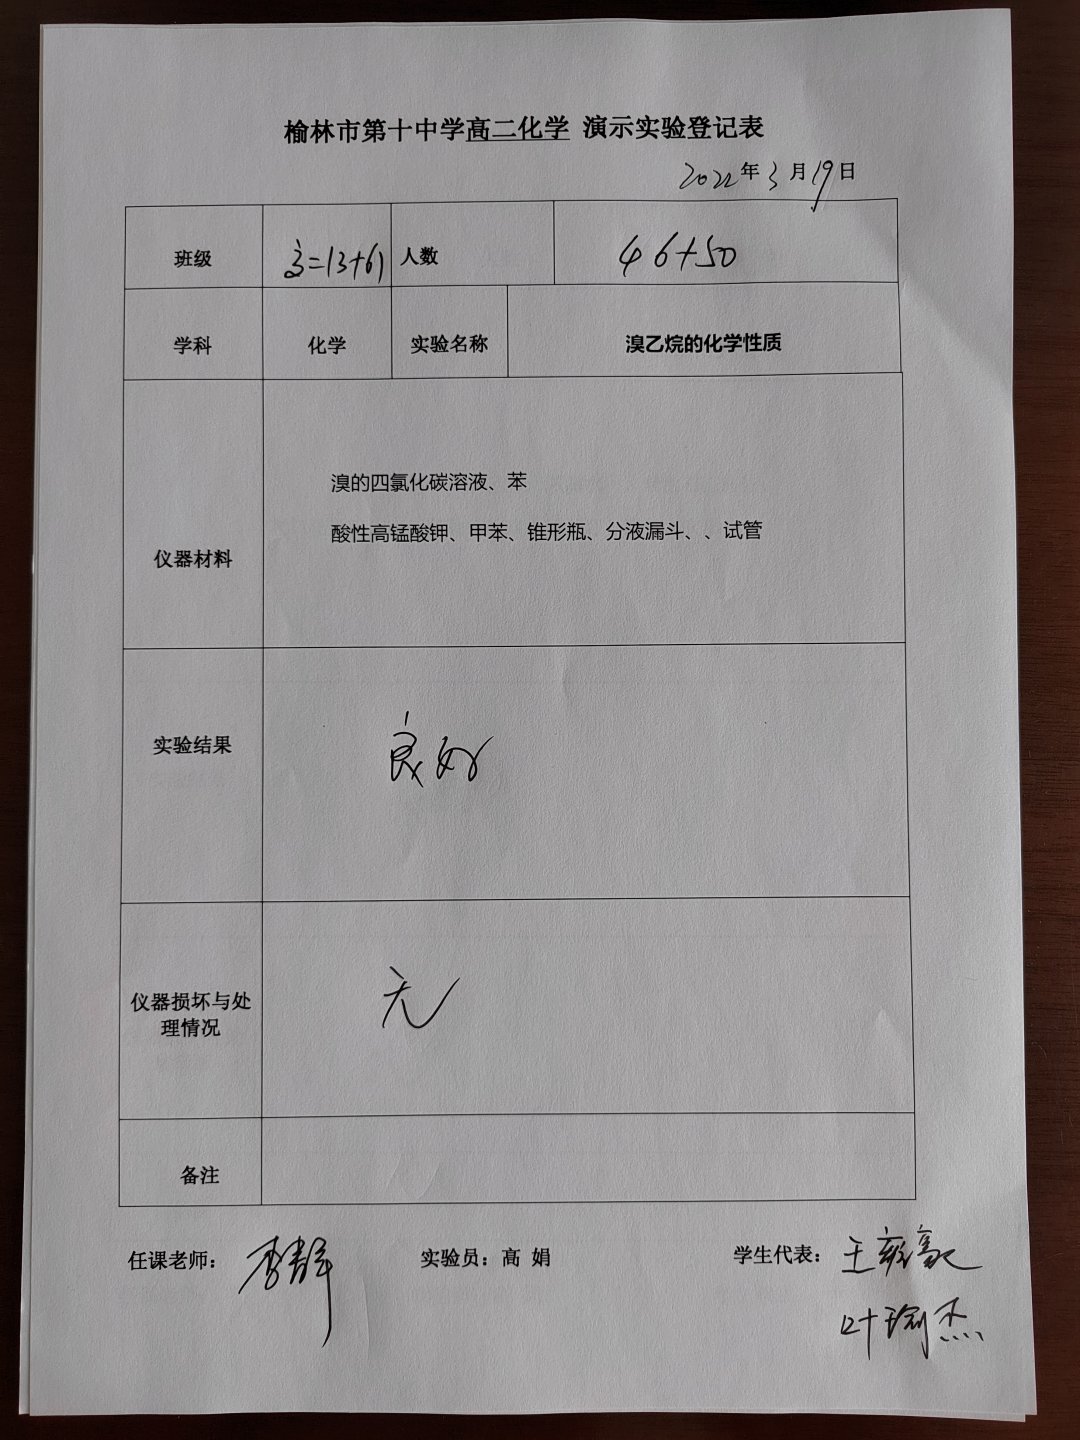 榆林市第十中学高二化学 演示实验登记表
2022年3月19日
班级 高二(3+6) 人数 46+50
学科 化学 实验名称 溴乙烷的化学性质
仪器材料
溴的四氯化碳溶液、苯
酸性高锰酸钾、甲苯、锥形瓶、分液漏斗、、试管
实验结果 良好
仪器损坏与处
理情况
无
备注
任课老师： 实验员：高 娟 学生代表：